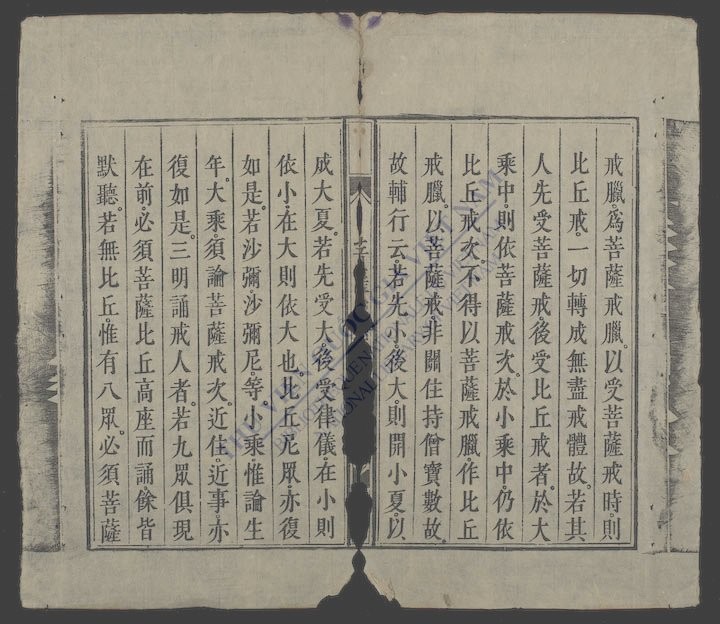 戒臘。爲菩薩戒臘。以受菩薩戒時。則
比丘戒。一切轉成無盡戒體故。若其
人先受菩薩戒。後受比丘戒者。於大
乘中。則依菩薩戒次。於小乘中。仍依
比丘戒次。不得以菩薩戒臘。作比丘
戒臘。以菩薩戒。非關住持僧寶數故。
故輔行云。若先小。後大。則開小夏。以
成大夏。若先受大。後受律儀。在小則
依小。在大則依大也。比丘尼眾。亦復
如是。若沙彌沙彌尼。等。小乘。惟論生
年。大乘。須論菩薩戒次。近住。近事。亦
復如是。三明誦戒人者。若九眾俱現
在前。必須菩薩比丘高座而誦。餘皆
默聽。若無比丘。惟有八眾。必須菩薩
THƯ VIỆN QUỐC GIA VIỆT NAM
NATIONAL LIBRARY OF VIETNAM